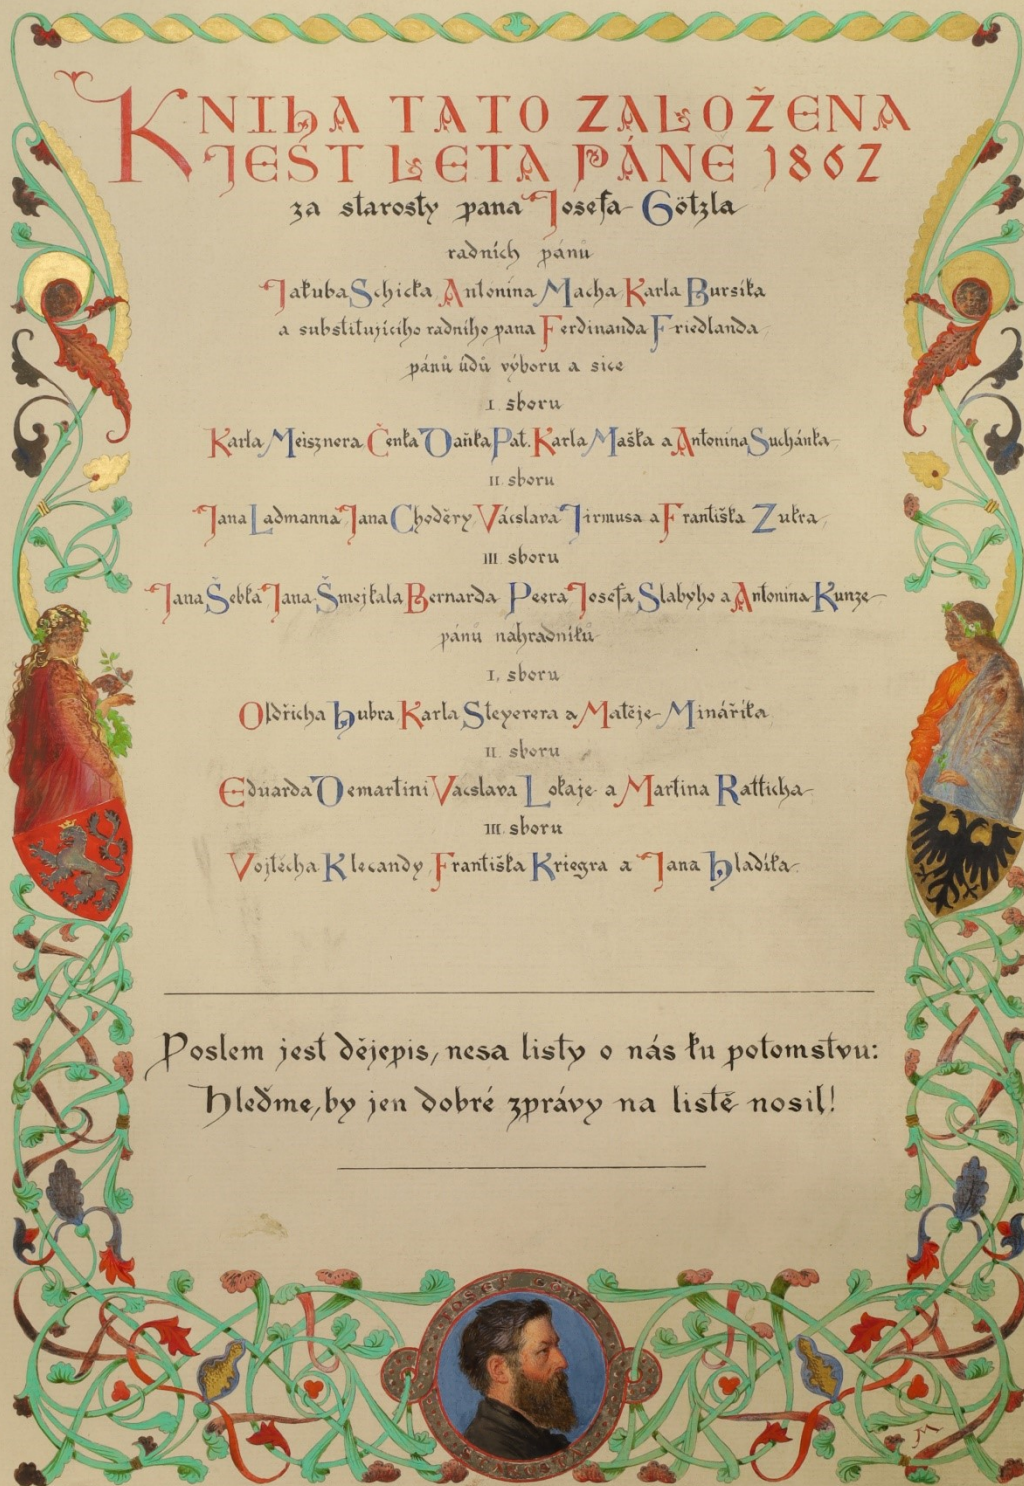 KNIHA TATO ZALOŽENA
JEST LETA PÁNĚ 1862
za starosty pana Josefa Götzla
radních pánů
Jakuba Schicka Antonína Macha Karla Bursíka
a substitujícího radního pana Ferdinanda Friedlanda
pánů údů výboru a sice
I. sboru
Karla Meisznera Čeňka Daňka Pat. Karla Maška a Antonína Suchánka
II. sboru
Jana Ladmanna Jana Choděry Vácslava Jirmusa a Františka Zukra
III. sboru
Jana Šebka Jana Šmejkala Bernarda Peera Josefa Slabyho a Antonína Kunze
pánů nahradníků
I. sboru
Oldřicha Hubra Karla Steyerera a Matěje Mináříka
II. sboru
Eduarda Demartini Vácslava Lokaje a MartinaRatticha
III. sboru
Vojtěcha Klecandy Františka Kriegra a Jana Hladíka
Poslem jest dějepis, nesa listy o nás ku potomstvu:
Hleďme, by jen dobré zprávy na listě nosil!
JOSEF
M